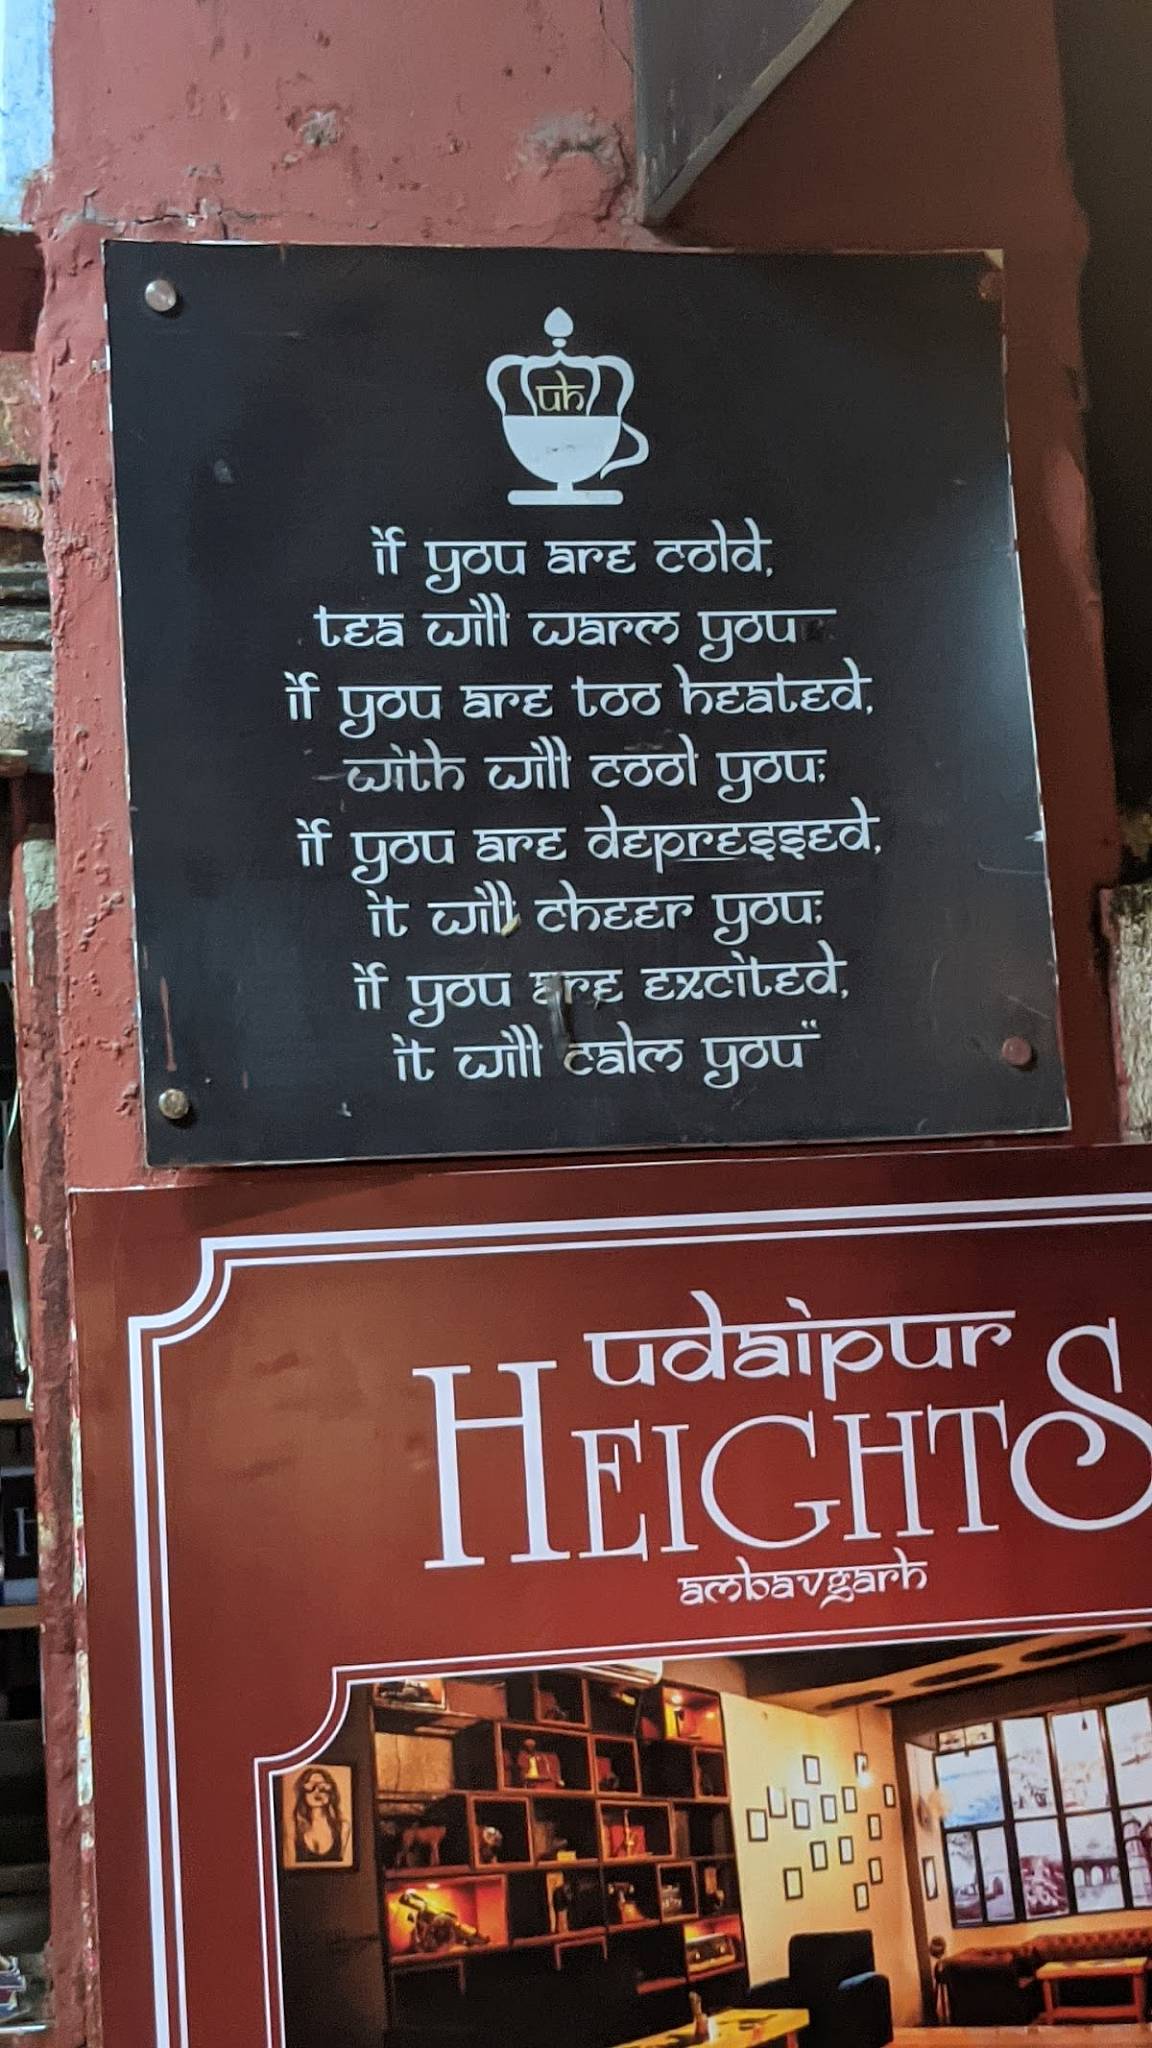 uh
if you are cold,
tea will warm you
if you are too heated,
with will cool you;
if you are depressed,
it will cheer you;
if you are excited,
it will calm you"
udaipur
HEIGHTS
ambavgarh